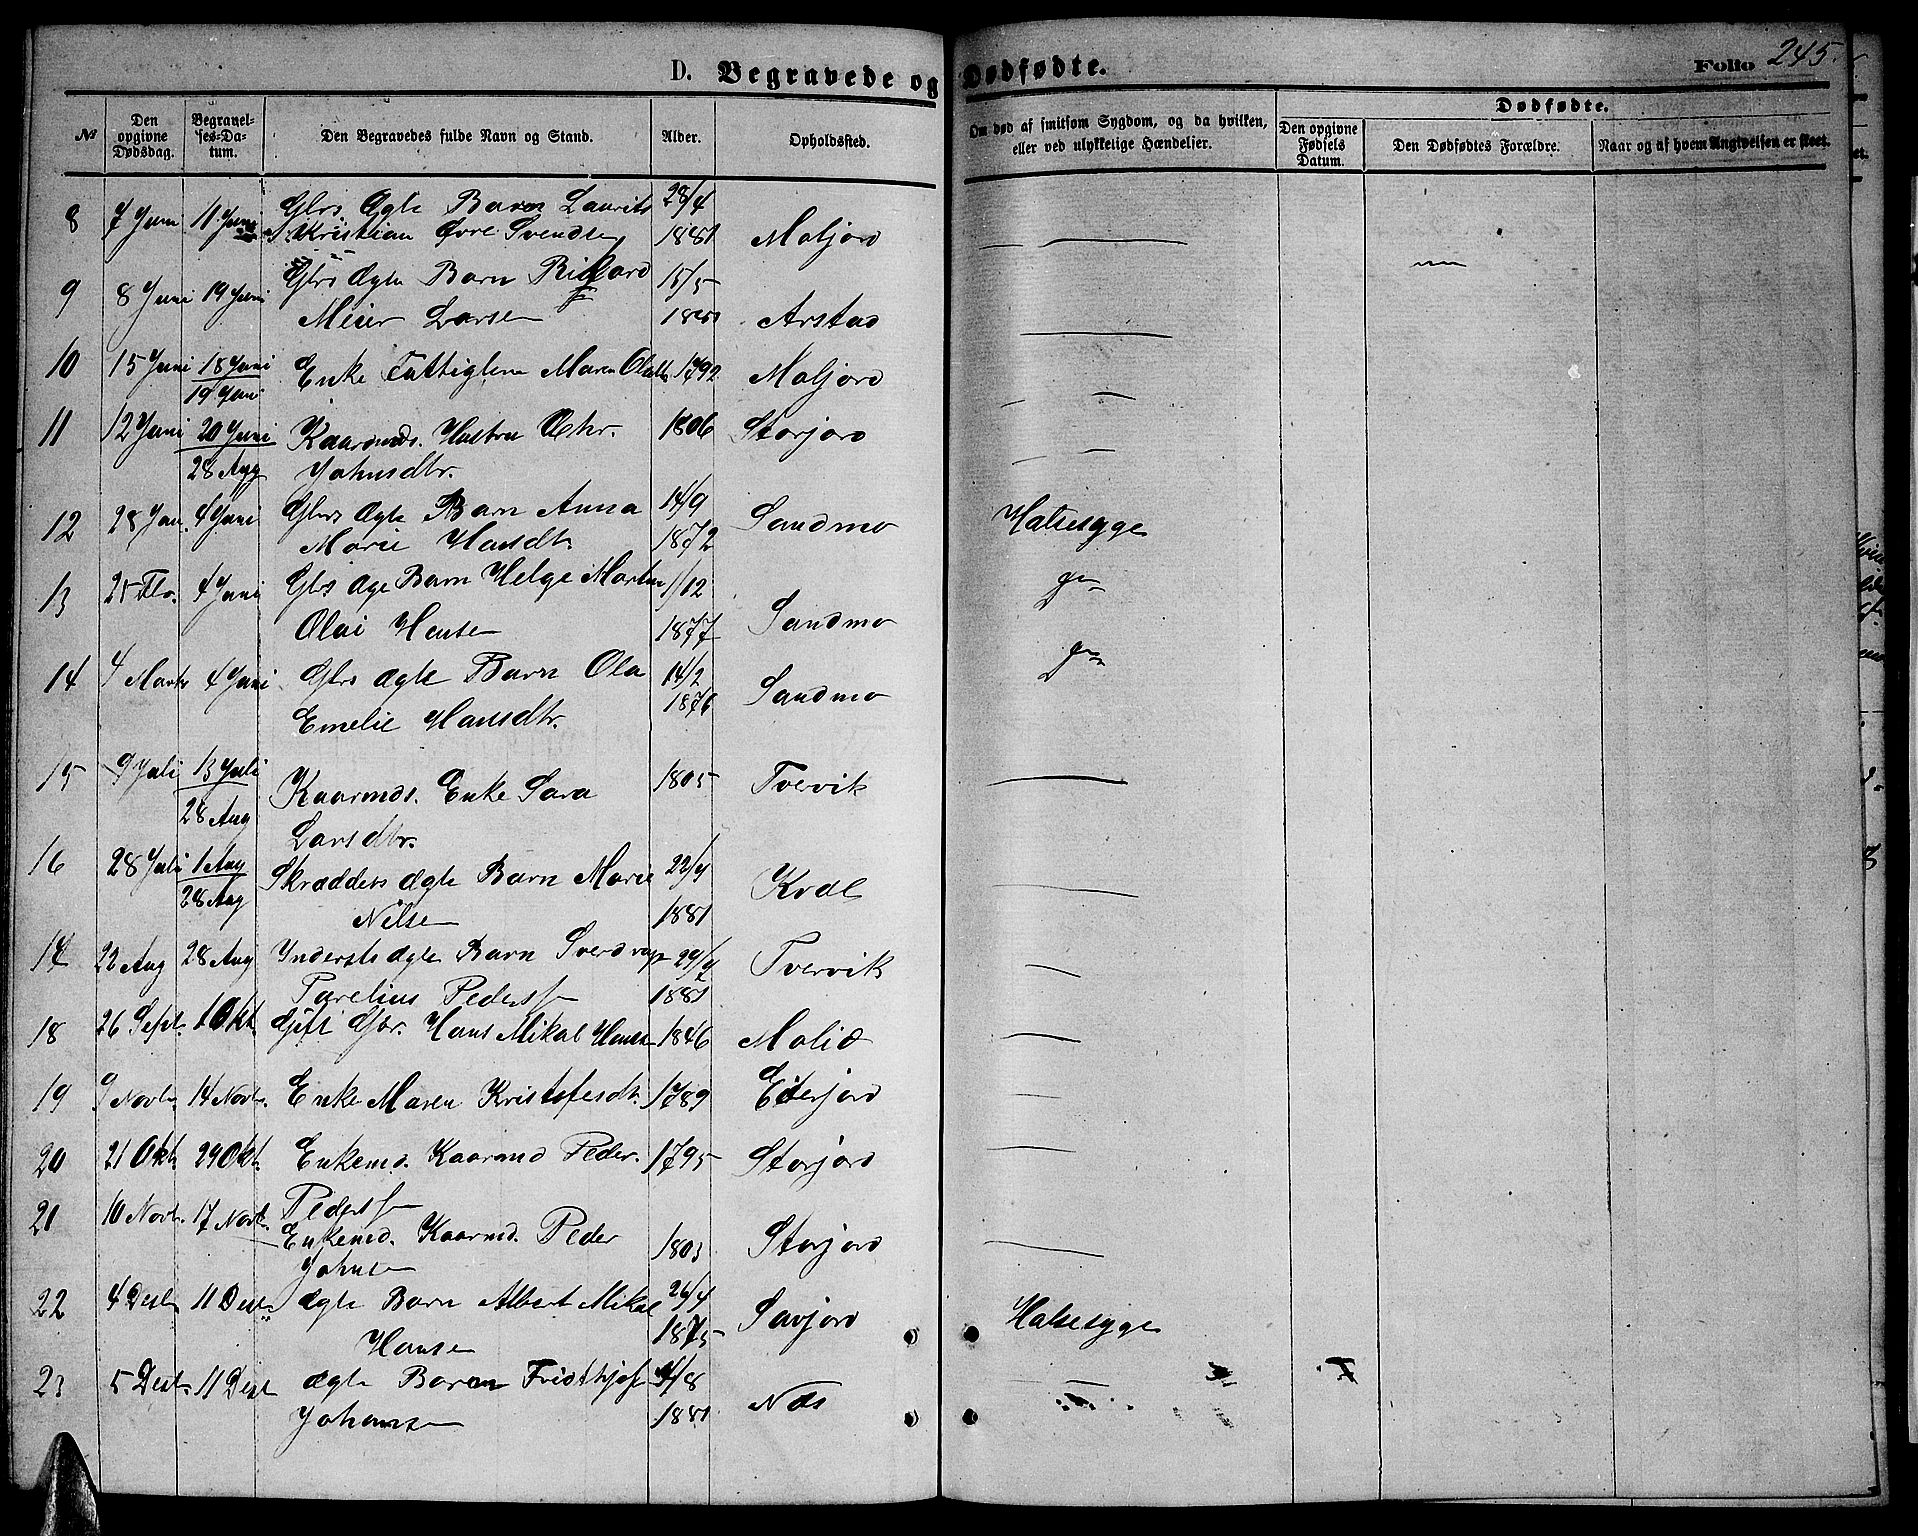 D. Begravede og Dødfødte.
Folio 245.
№
Den opgivne Dødsdag.
Begravel-ses-Da-tum.
Den Begravedes fulde Navn og Stand.
Alder.
Opholdssted.
Om død af smitsom Sygdom, og da hvilken, eller ved ulykkelige Hændelser.
Dødfødte.
Den opgivne Fødsels Datum.
Den Dødfødtes Forældre.
Naar og af hvem Angivelsen er skeet.
8 7 Juni 11 Juni Gbrs. Ægte Barn Laurits 29/4
Kristian Øvre Svendse 1881 Moljord
9 8 Juni 19 Juni Gbrs Ægte Barn Rikard 15/5
Meier Larse Arstad
10 15 Juni 18 Juni Enke Fattiglem Maren 1792 Moljord
19 Juni
11 12 Juni 20 Juni Kaarmds. Hustru Chr. 1806 Storjord
28 Aug Johnsdtr.
12 28 Jan. 4 Juni Gbrs ægte Barn Anna 14/9 Sandmo Halsesyge
Marie Hansdtr 1872
13 25 Feb. 4 Juni Gbrs Barn Helge Martin 1/12
Olai Hanse 1877 Sandmo
14 4 Marts 4 Juni Gbrs ægte Barn Ola 14/2 Sandmo
Emelie Hansdtr. 1876
15 9 Juli 13 Juli Kaarmds. Enke Sara 1805 Tvervik
28 Aug Larsdtr.
16 28 Juli 1 Aug Skrædders ægte Barn Marie Kvæl
28 Aug Nilse 1881
17 22 Aug 28 Aug Indersts ægte Barn Tvervik
Parelius Peders 1881
18 26 Sept. 1 Okt. Gift Gbr. Hans Mikal Hanse 1846 Molid
19 9 Novbr. 14 Novbr. Enke Maren 1789 Eiterjord
20 21 Okt. 29 Okt. Enkemd. Kaarmd Peder 1795 Storjord
Peders
21 10 Novbr. 17 Novbr. Enkemd. Kaarmd. Peder 1803 Storjord
Johnse
22 4 Desbr 11 Desbr ægte Barn Albert Mikal 26/4 Savjord Halsesyge
Hanse 1875
23 5 Desbr. 11 Desbr ægte Barn Fridthjof /8 Næs
Johanse 1881